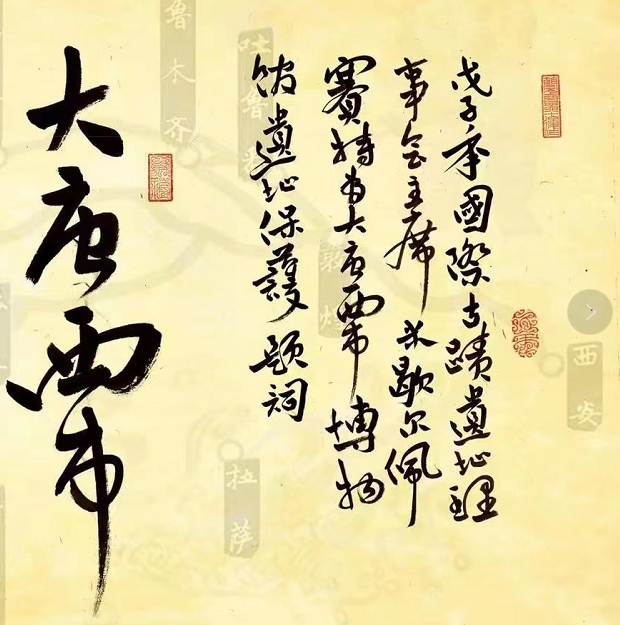 戊子年國際古蹟遺址理
事会主席米歇尔佩
賽特为大唐西市博物
馆遺址保護题词
大唐西市
西安
敦煌
吐鲁番
拉萨
鲁木齐